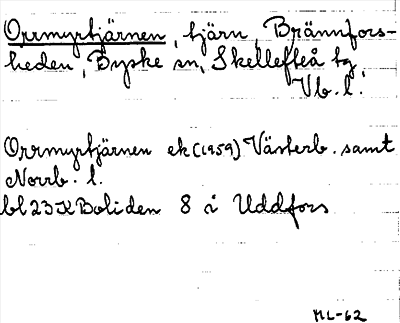 Orrmyrtjärnen, tjärn, Brännfors-
heden, Byske sn, Skellefteå tg
Vb. l.
Orrmyrtjärnen ek (1959) Västerb. samt
Norrb. l.
bl 23 K Boliden 8 i Uddfors
ML-62